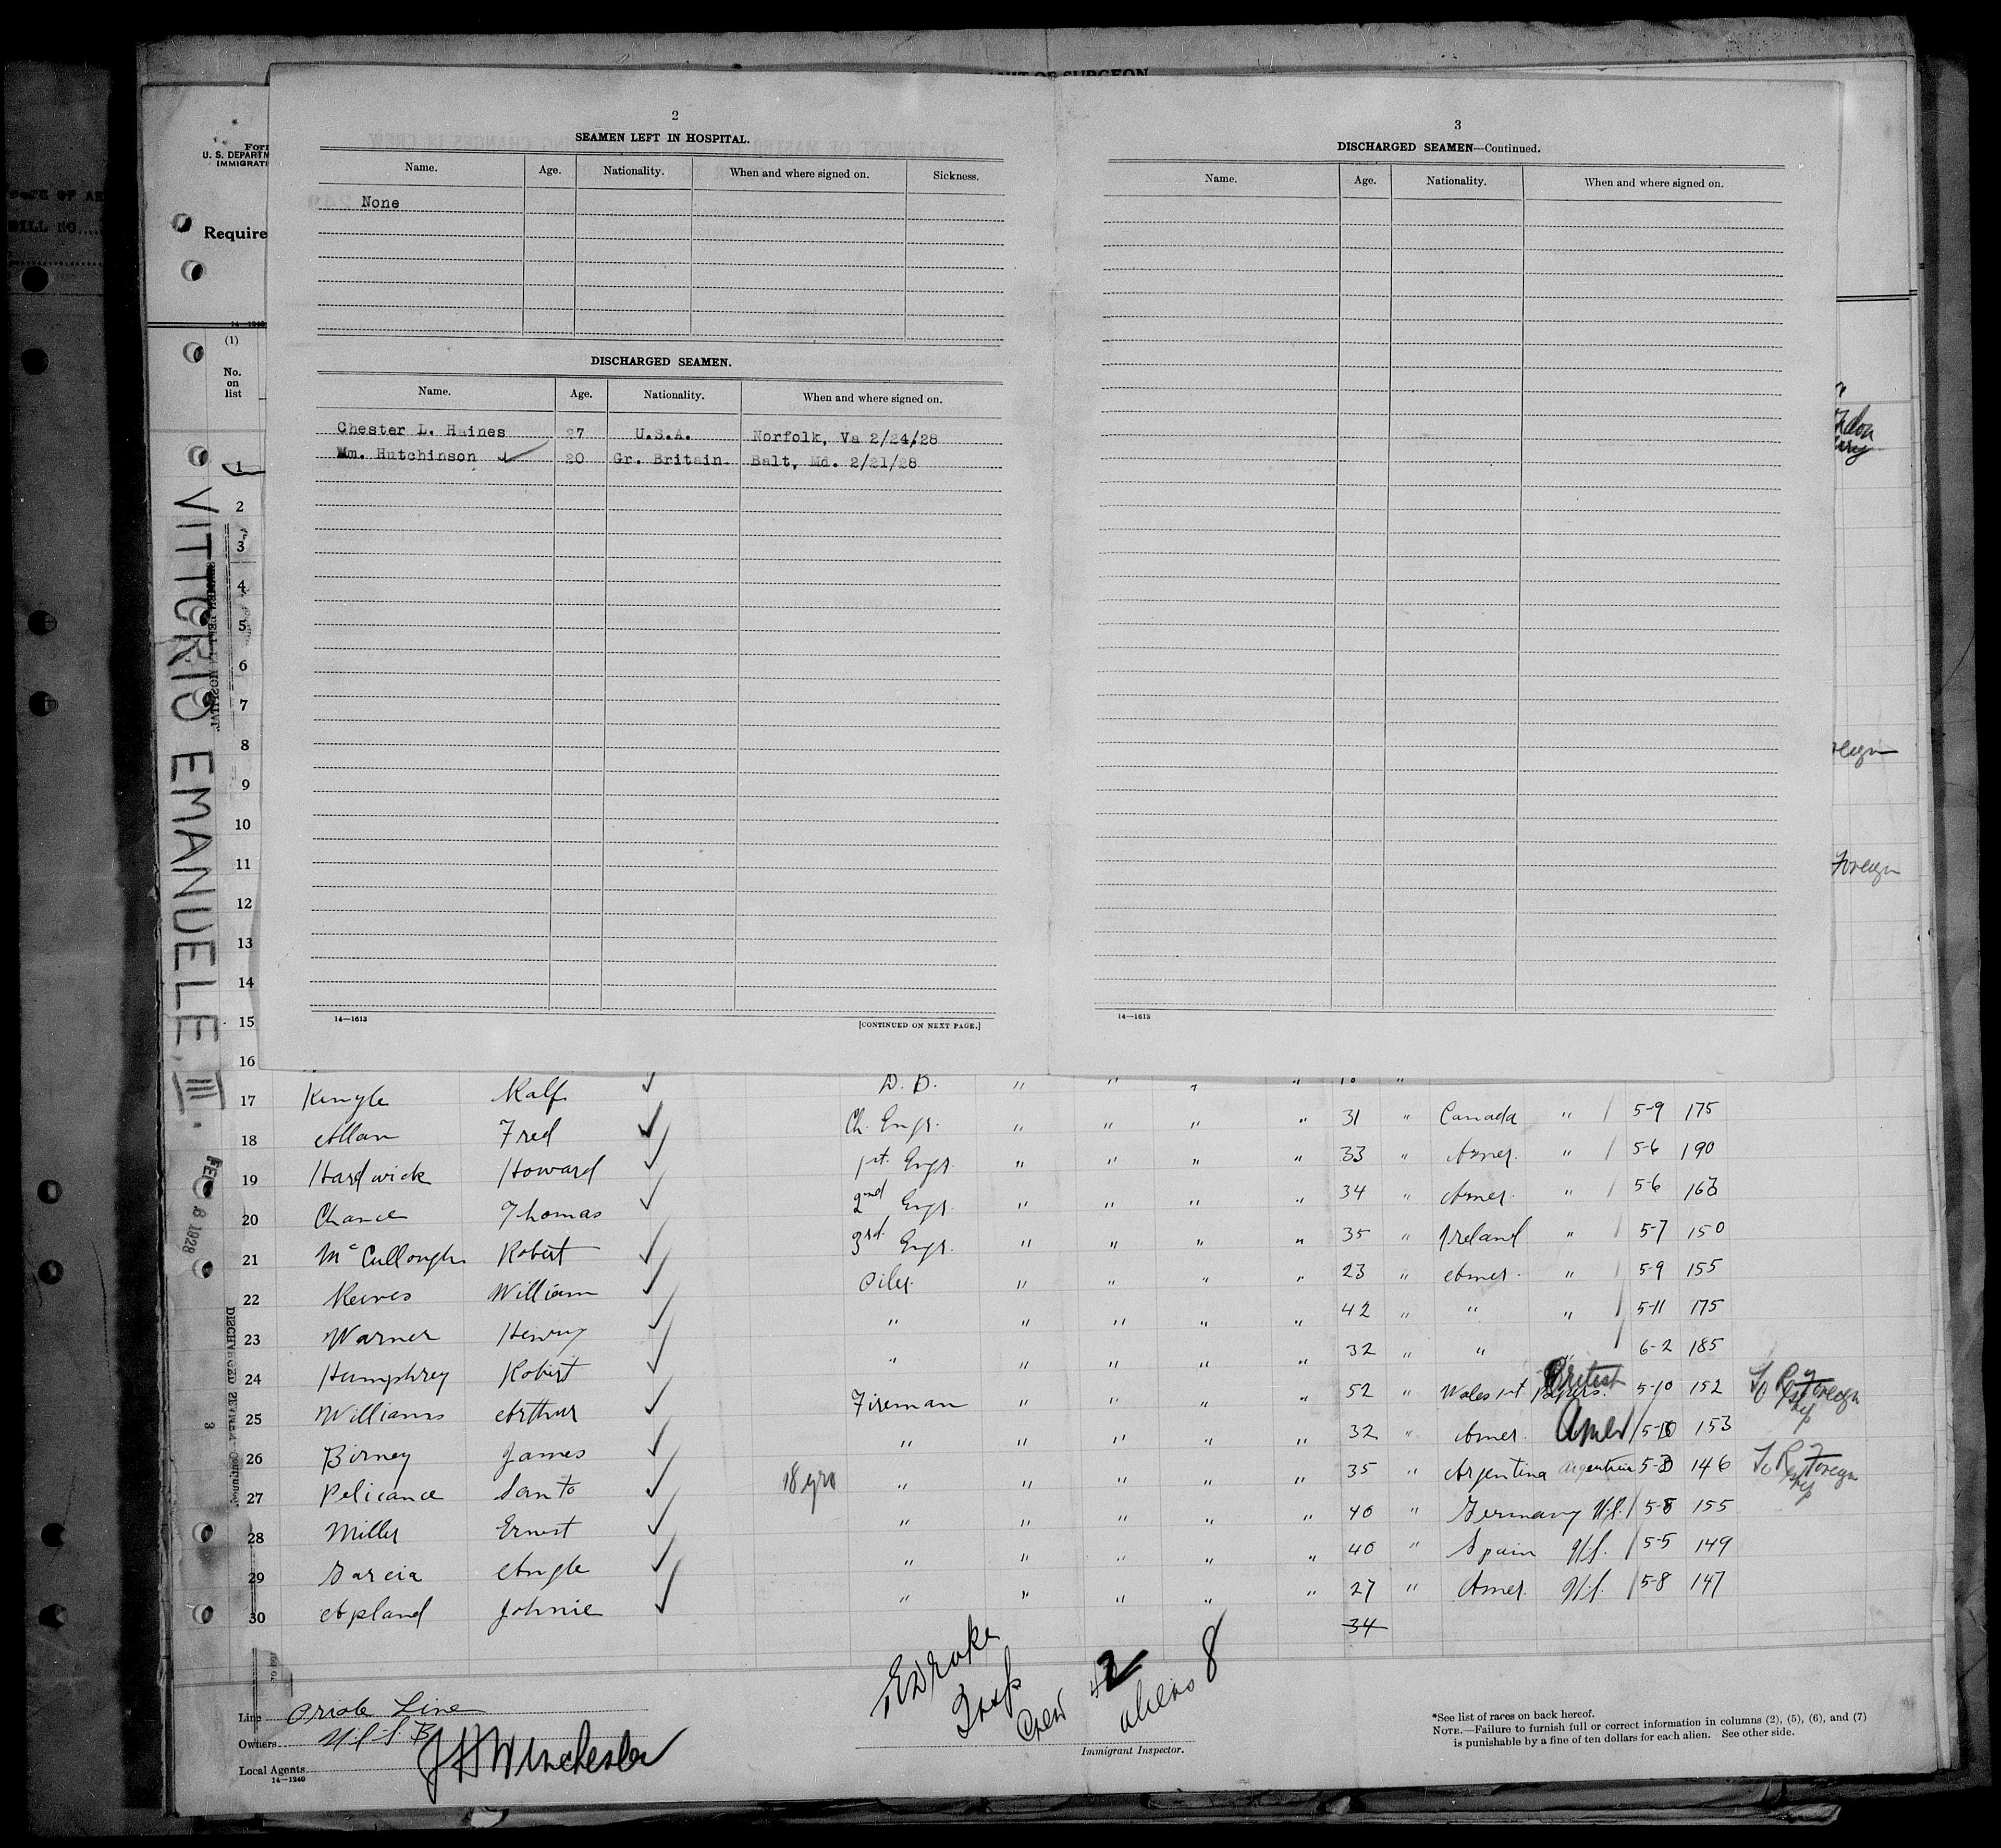 2
SEAMEN LEFT IN HOSPITAL.
Name. Age. Nationality. When and where signed on. Sickness.
None
DISCHARGED SEAMEN.
Name. Age. Nationality. When and where signed on.
Chester L. Haines 27 U.S.A. Norfolk, Va 2/24/28
Wm. Hutchinson ✓ 20 Gr. Britain. Balt, Md. 2/21/28
14—1613
[CONTINUED ON NEXT PAGE.]
3
DISCHARGED SEAMEN—Continued.
Name. Age. Nationality. When and where signed on.
14—1613
U. S. DEPARTM
IMMIGRATI
Require
(1)
No.
on
list
1
2
3
4
5
6
7
8
9
10
11
12
13
14
15
16
VITTORIO EMANUELE III.
Foreign
17 Ralf ✓ D. B. " " " "
18 Allan Fred ✓ Ch. Engr. " " " " 31 " Canada " / 5-9 175
19 Hardwick Howard ✓ 1st. Engr. " " " " 33 " Amer. " / 5-6 190
20 Chance Thomas ✓ 2nd Engr. " " " " 34 " Amer. " / 5-6 163
21 McCullough Robert ✓ 3rd. Engr. " " " " 35 " Ireland " / 5-7 150
22 Reeves William ✓ Oiler. " " " " 23 " Amer. " / 5-9 155
23 Warner Henry ✓ " " " " " 42 " " " / 5-11 175
24 Humphrey Robert ✓ " " " " " 32 " " " / 6-2 185
25 Williams Arthur ✓ Fireman " " " " 52 " Wales 1st Papers. British 5-10 152 To Reship Foreign
26 Birney James ✓ " " " " " 32 " Amer. Amer / 153
27 Pelicance Santo ✓ 18 yrs " " " " " 35 " Argentina Argentina 146 To Reship Foreign
28 Miller Ernest ✓ " " " " " 40 " Germany U.S. / 5-8 155
29 Garcia Angle ✓ " " " " " 40 " Spain U.S. / 5-5 149
30 Apland Johnie ✓ " " " " " 27 " Amer. U.S. / 5-8 147
34
Drake
Insp
Crew 42
aliens 8
Immigrant Inspector.
Line Oriole Line
Owners U.S.S.B.
Local Agents J H Winchester
14—1240
*See list of races on back hereof.
NOTE.—Failure to furnish full or correct information in columns (2), (5), (6), and (7)
is punishable by a fine of ten dollars for each alien. See other side.